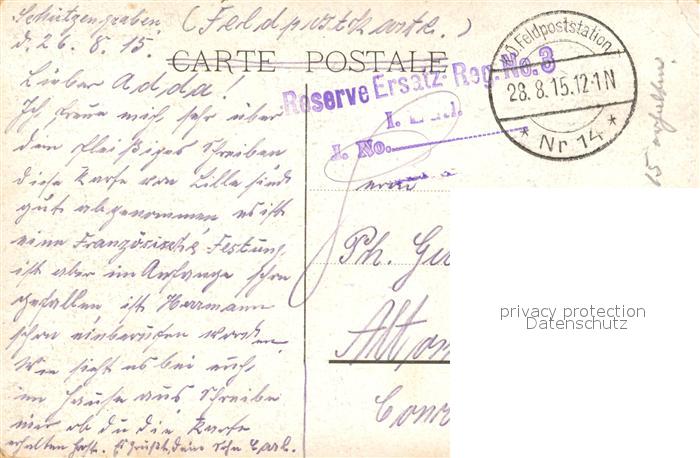 Schützengraben,
d. 26. 8. 15.
(Feldpostkarte.)
CARTE POSTALE
Lieber Adda!
Ich freue mich sehr über
dein fleißiges Schreiben
diese Karte von Lille sind
gut abgenommen es ist
eine Französische Festung,
ist aber im Anfange schon
gefallen, ist Herrmann
schon einberufen worden
Wie sieht es bei euch
im Hause aus Schreibe
mir ob du die Karte
erhalten hast. Es grüßt deine Sohn Carl.
Reserve Ersatz-Reg. No. 3
I.
J. No.
Feldpoststation
28. 8. 15. 12-1 N
* Nr 14 *
Herrn
Ph.
15 erhalten.
privacy protection
Datenschutz